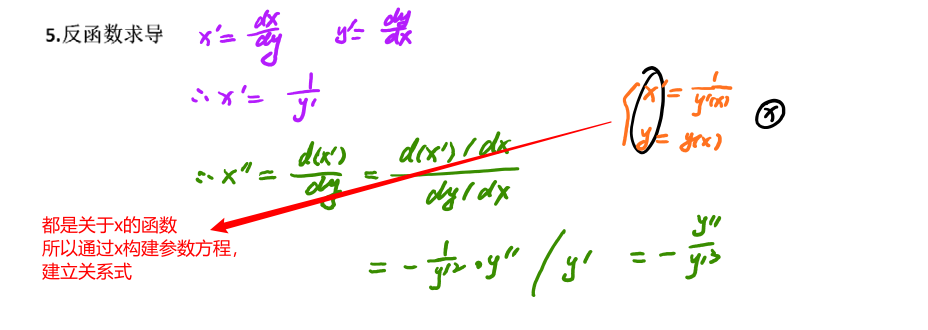 5.反函数求导 x' = dx/dy y' = dy/dx
∴ x' = 1/y'
{ x' = 1/y'(x)
y = y(x)
x
∴ x'' = d(x')/dy = d(x')/dx / dy/dx
都是关于x的函数
所以通过x构建参数方程，
建立关系式
= - 1/y'² · y'' / y' = - y''/y'³